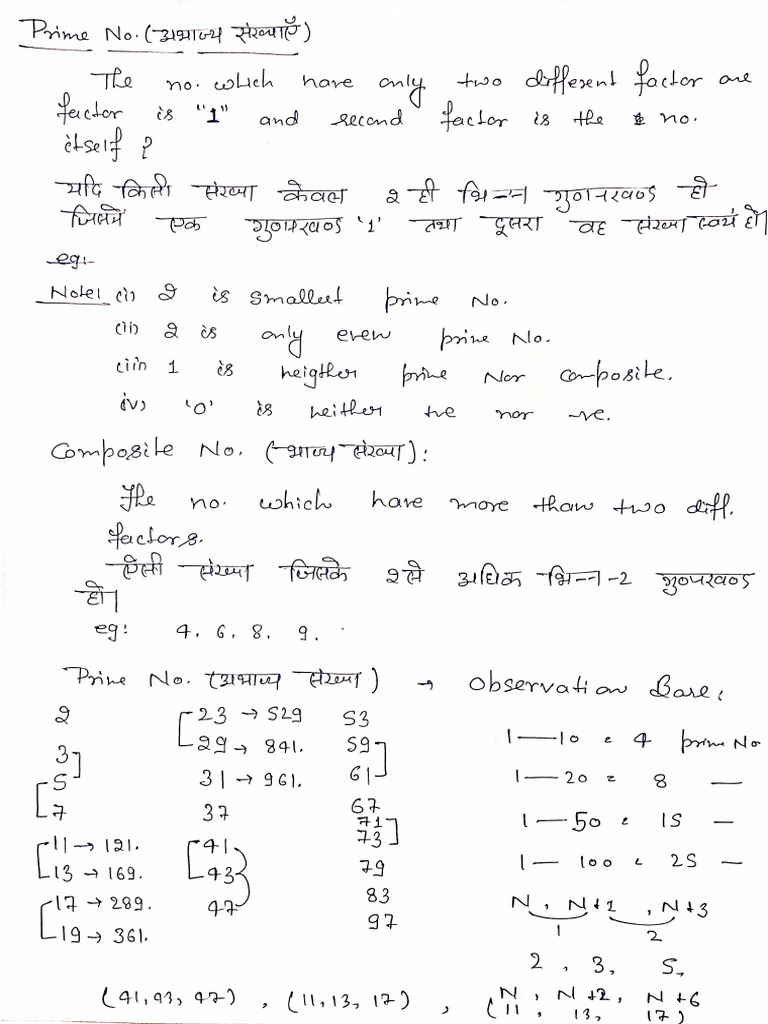 Prime No. (अभाज्य संख्याएँ)
The no. which have only two different factor are
factor is "1" and second factor is the no.
itself ?
यदि किसी संख्या केवल 2 ही भिन्न गुणनखण्ड हो
जिसमें एक गुणनखण्ड '1' तथा दूसरा वह संख्या स्वयं हो।
eg:-
Note: (i) 2 is smallest prime No.
(ii) 2 is only even prime No.
(iii) 1 is neigther prime Nor composite.
(iv) '0' is neither +ve nor -ve.
Composite No. (भाज्य संख्या) :
The no. which have more than two diff.
factors.
ऐसी संख्या जिसके 2 से अधिक भिन्न-2 गुणनखण्ड
हो।
eg: 4, 6, 8, 9.
Prime No. (अभाज्य संख्या) → Observation Bare:
2 23 → 529 53
3 29 → 841. 59 1—10 = 4 prime No
5 31 → 961. 61 1—20 = 8 —
7 37 67 1—50 = 15 —
71
11 → 121. 41 73
13 → 169. 43 79 1—100 = 25 —
17 → 289. 47 83 N, N+1, N+3
19 → 361. 97 1 2
2, 3, 5,
(41, 43, 47), (11, 13, 17), (N, N+2, N+6
11, 13, 17)